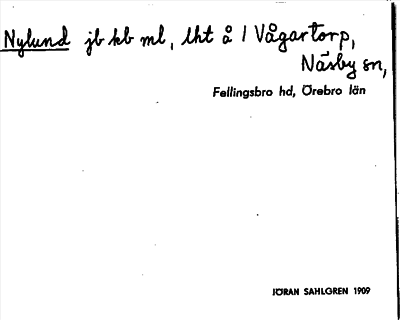 Nylund jb kb ml, lht å 1 Vågartorp,
Näsby sn,
Fellingsbro hd, Örebro län
JÖRAN SAHLGREN 1909